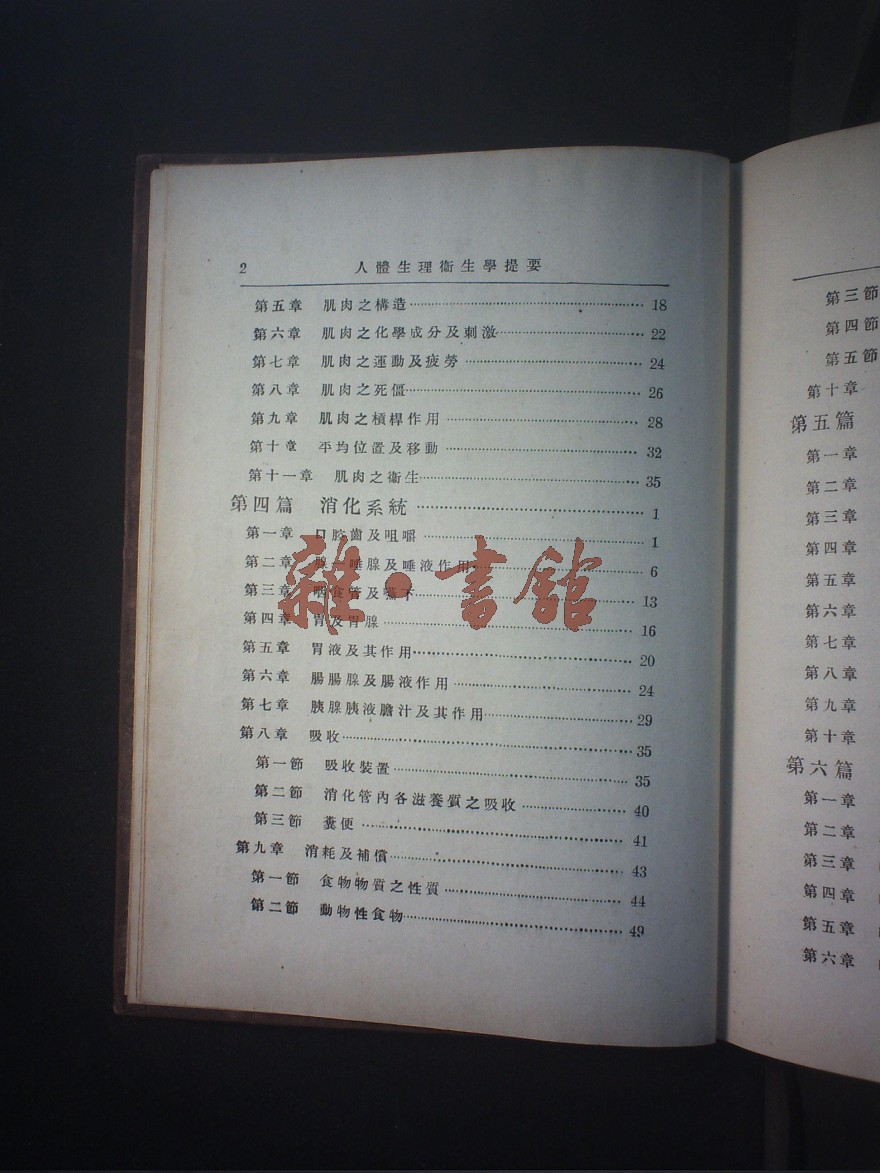 2 人體生理衞生學提要
第五章 肌肉之構造 18
第六章 肌肉之化學成分及刺激 22
第七章 肌肉之運動及疲勞 24
第八章 肌肉之死僵 26
第九章 肌肉之槓桿作用 28
第十章 平均位置及移動 32
第十一章 肌肉之衞生 35
第四篇 消化系統 1
第一章 口腔齒及咀嚼 1
第二章 腺—唾腺及唾液作用 6
第三章 咽食管及嚥下 13
第四章 胃及胃腺 16
第五章 胃液及其作用 20
第六章 腸腸腺及腸液作用 24
第七章 胰腺胰液膽汁及其作用 29
第八章 吸收 35
第一節 吸收裝置 35
第二節 消化管內各滋養質之吸收 40
第三節 糞便 41
第九章 消耗及補償 43
第一節 食物物質之性質 44
第二節 動物性食物 49
雜·書館
第三節
第四節
第五節
第十章
第五篇
第一章
第二章
第三章
第四章
第五章
第六章
第七章
第八章
第九章
第十章
第六篇
第一章
第二章
第三章
第四章
第五章
第六章